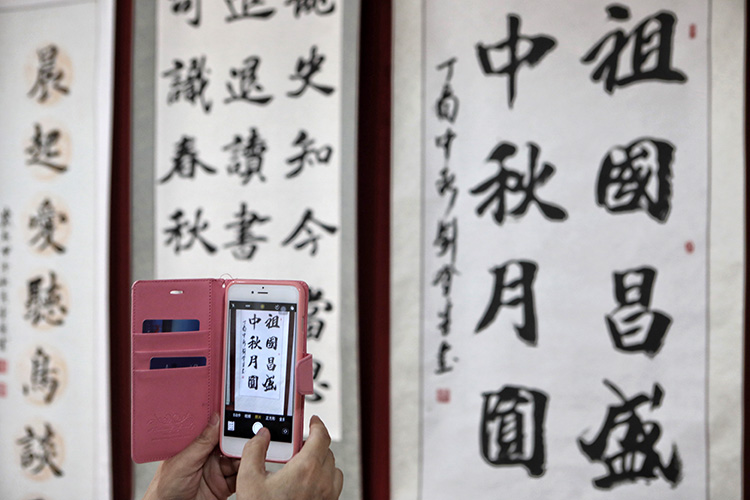 祖國昌盛
中秋月圓
丁酉中秋劉
史知今當思
進退讀書
可識春秋
晨起愛聽鳥談
祖國昌盛
中秋月圓